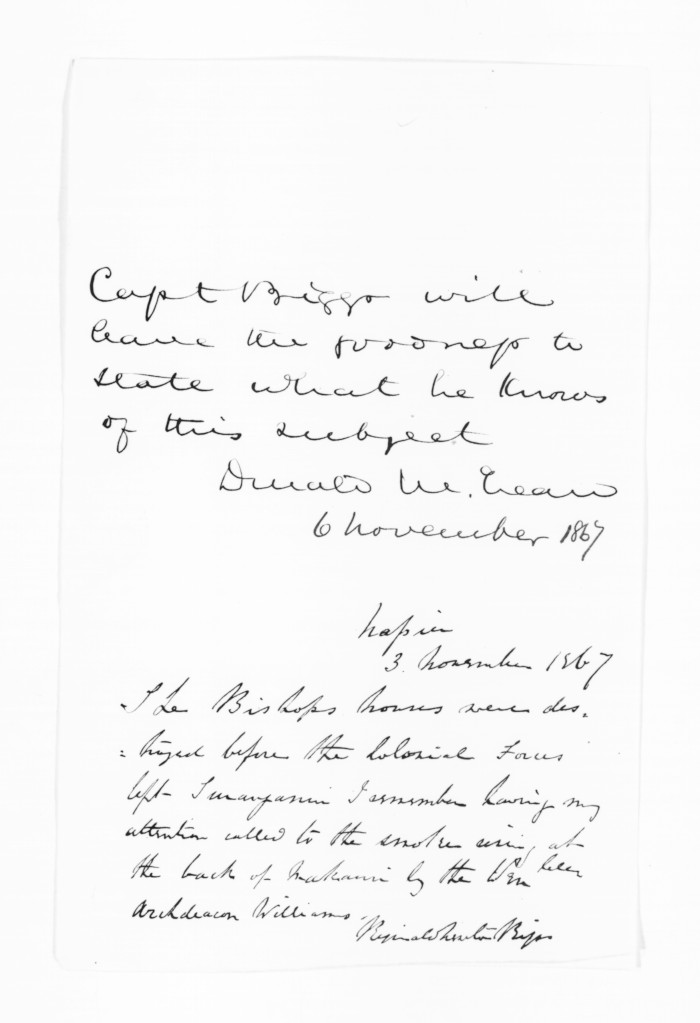 Capt Biggs will
have the goodness to
state what he knows
of this subject
Donald McLean
6 November 1867
Napier
3. November 1867
The Bishops houses were des,
=troyed before the Colonial Forces
left Turanganui I remember having my
attention called to the smoke rising at
the back of Makauri by the Ven
Archdeacon Williams.
Reginald Newton Biggs